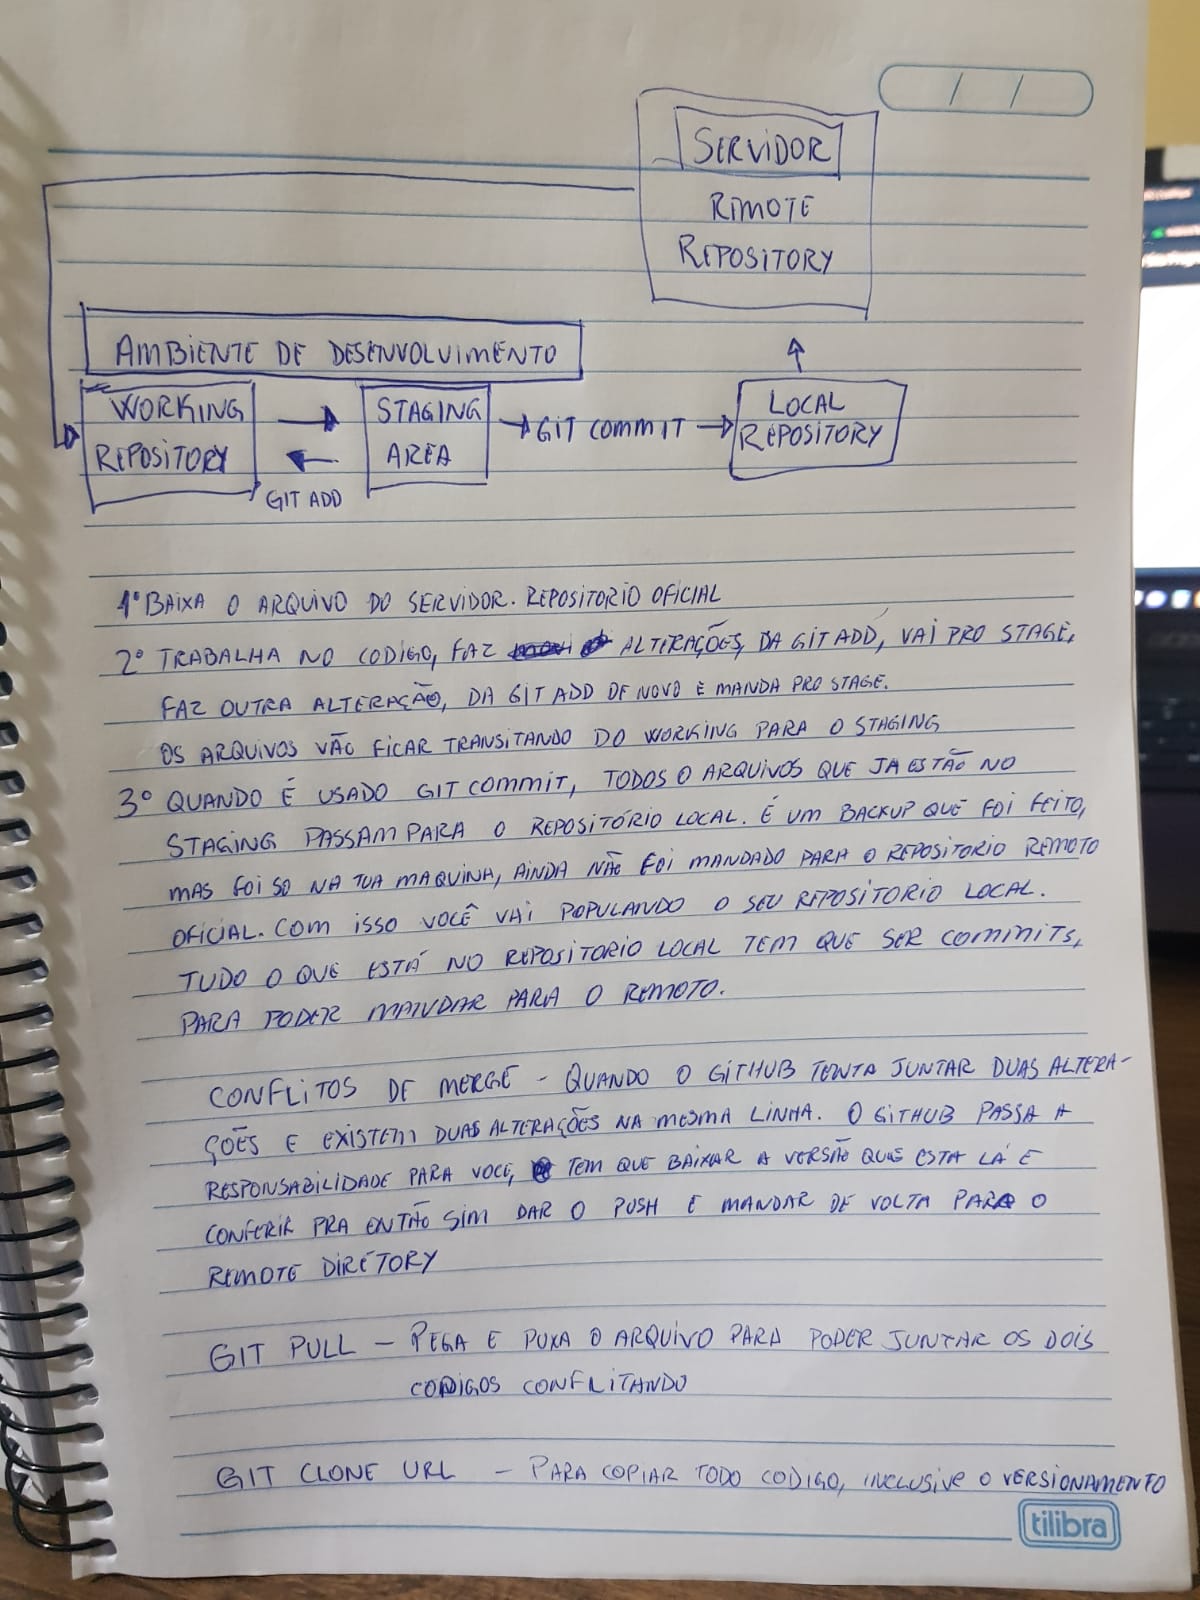 / /
SERVIDOR
REMOTE
REPOSITORY
AMBIENTE DE DESENVOLVIMENTO
WORKING
REPOSITORY
GIT ADD
STAGING
AREA
GIT COMMIT
LOCAL
REPOSITORY
1º BAIXA O ARQUIVO DO SERVIDOR. REPOSITORIO OFICIAL
2º TRABALHA NO CODIGO, FAZ ALTERAÇÕES, DA GIT ADD, VAI PRO STAGE,
FAZ OUTRA ALTERAÇÃO, DA GIT ADD DE NOVO E MANDA PRO STAGE.
OS ARQUIVOS VÃO FICAR TRANSITANDO DO WORKING PARA O STAGING
3º QUANDO É USADO GIT COMMIT, TODOS O ARQUIVOS QUE JA ESTÃO NO
STAGING PASSAM PARA O REPOSITÓRIO LOCAL. É UM BACKUP QUE FOI FEITO,
MAS FOI SO NA TUA MAQUINA, AINDA NÃO FOI MANDADO PARA O REPOSITORIO REMOTO
OFICIAL. COM ISSO VOCÊ VAI POPULANDO O SEU REPOSITORIO LOCAL.
TUDO O QUE ESTÁ NO REPOSITORIO LOCAL TEM QUE SER COMMITS,
PARA PODER MANDAR PARA O REMOTO.
CONFLITOS DE MERGE - QUANDO O GITHUB TENTA JUNTAR DUAS ALTERA-
ÇÕES E EXISTEM DUAS ALTERAÇÕES NA MESMA LINHA. O GITHUB PASSA A
RESPONSABILIDADE PARA VOCE, TEM QUE BAIXAR A VERSÃO QUE ESTA LÁ E
CONFERIR PRA ENTÃO SIM DAR O PUSH E MANDAR DE VOLTA PARA O
REMOTE DIRETORY
GIT PULL - PEGA E PUXA O ARQUIVO PARA PODER JUNTAR OS DOIS
CODIGOS CONFLITANDO
GIT CLONE URL - PARA COPIAR TODO CODIGO, INCLUSIVE O VERSIONAMENTO
tilibra